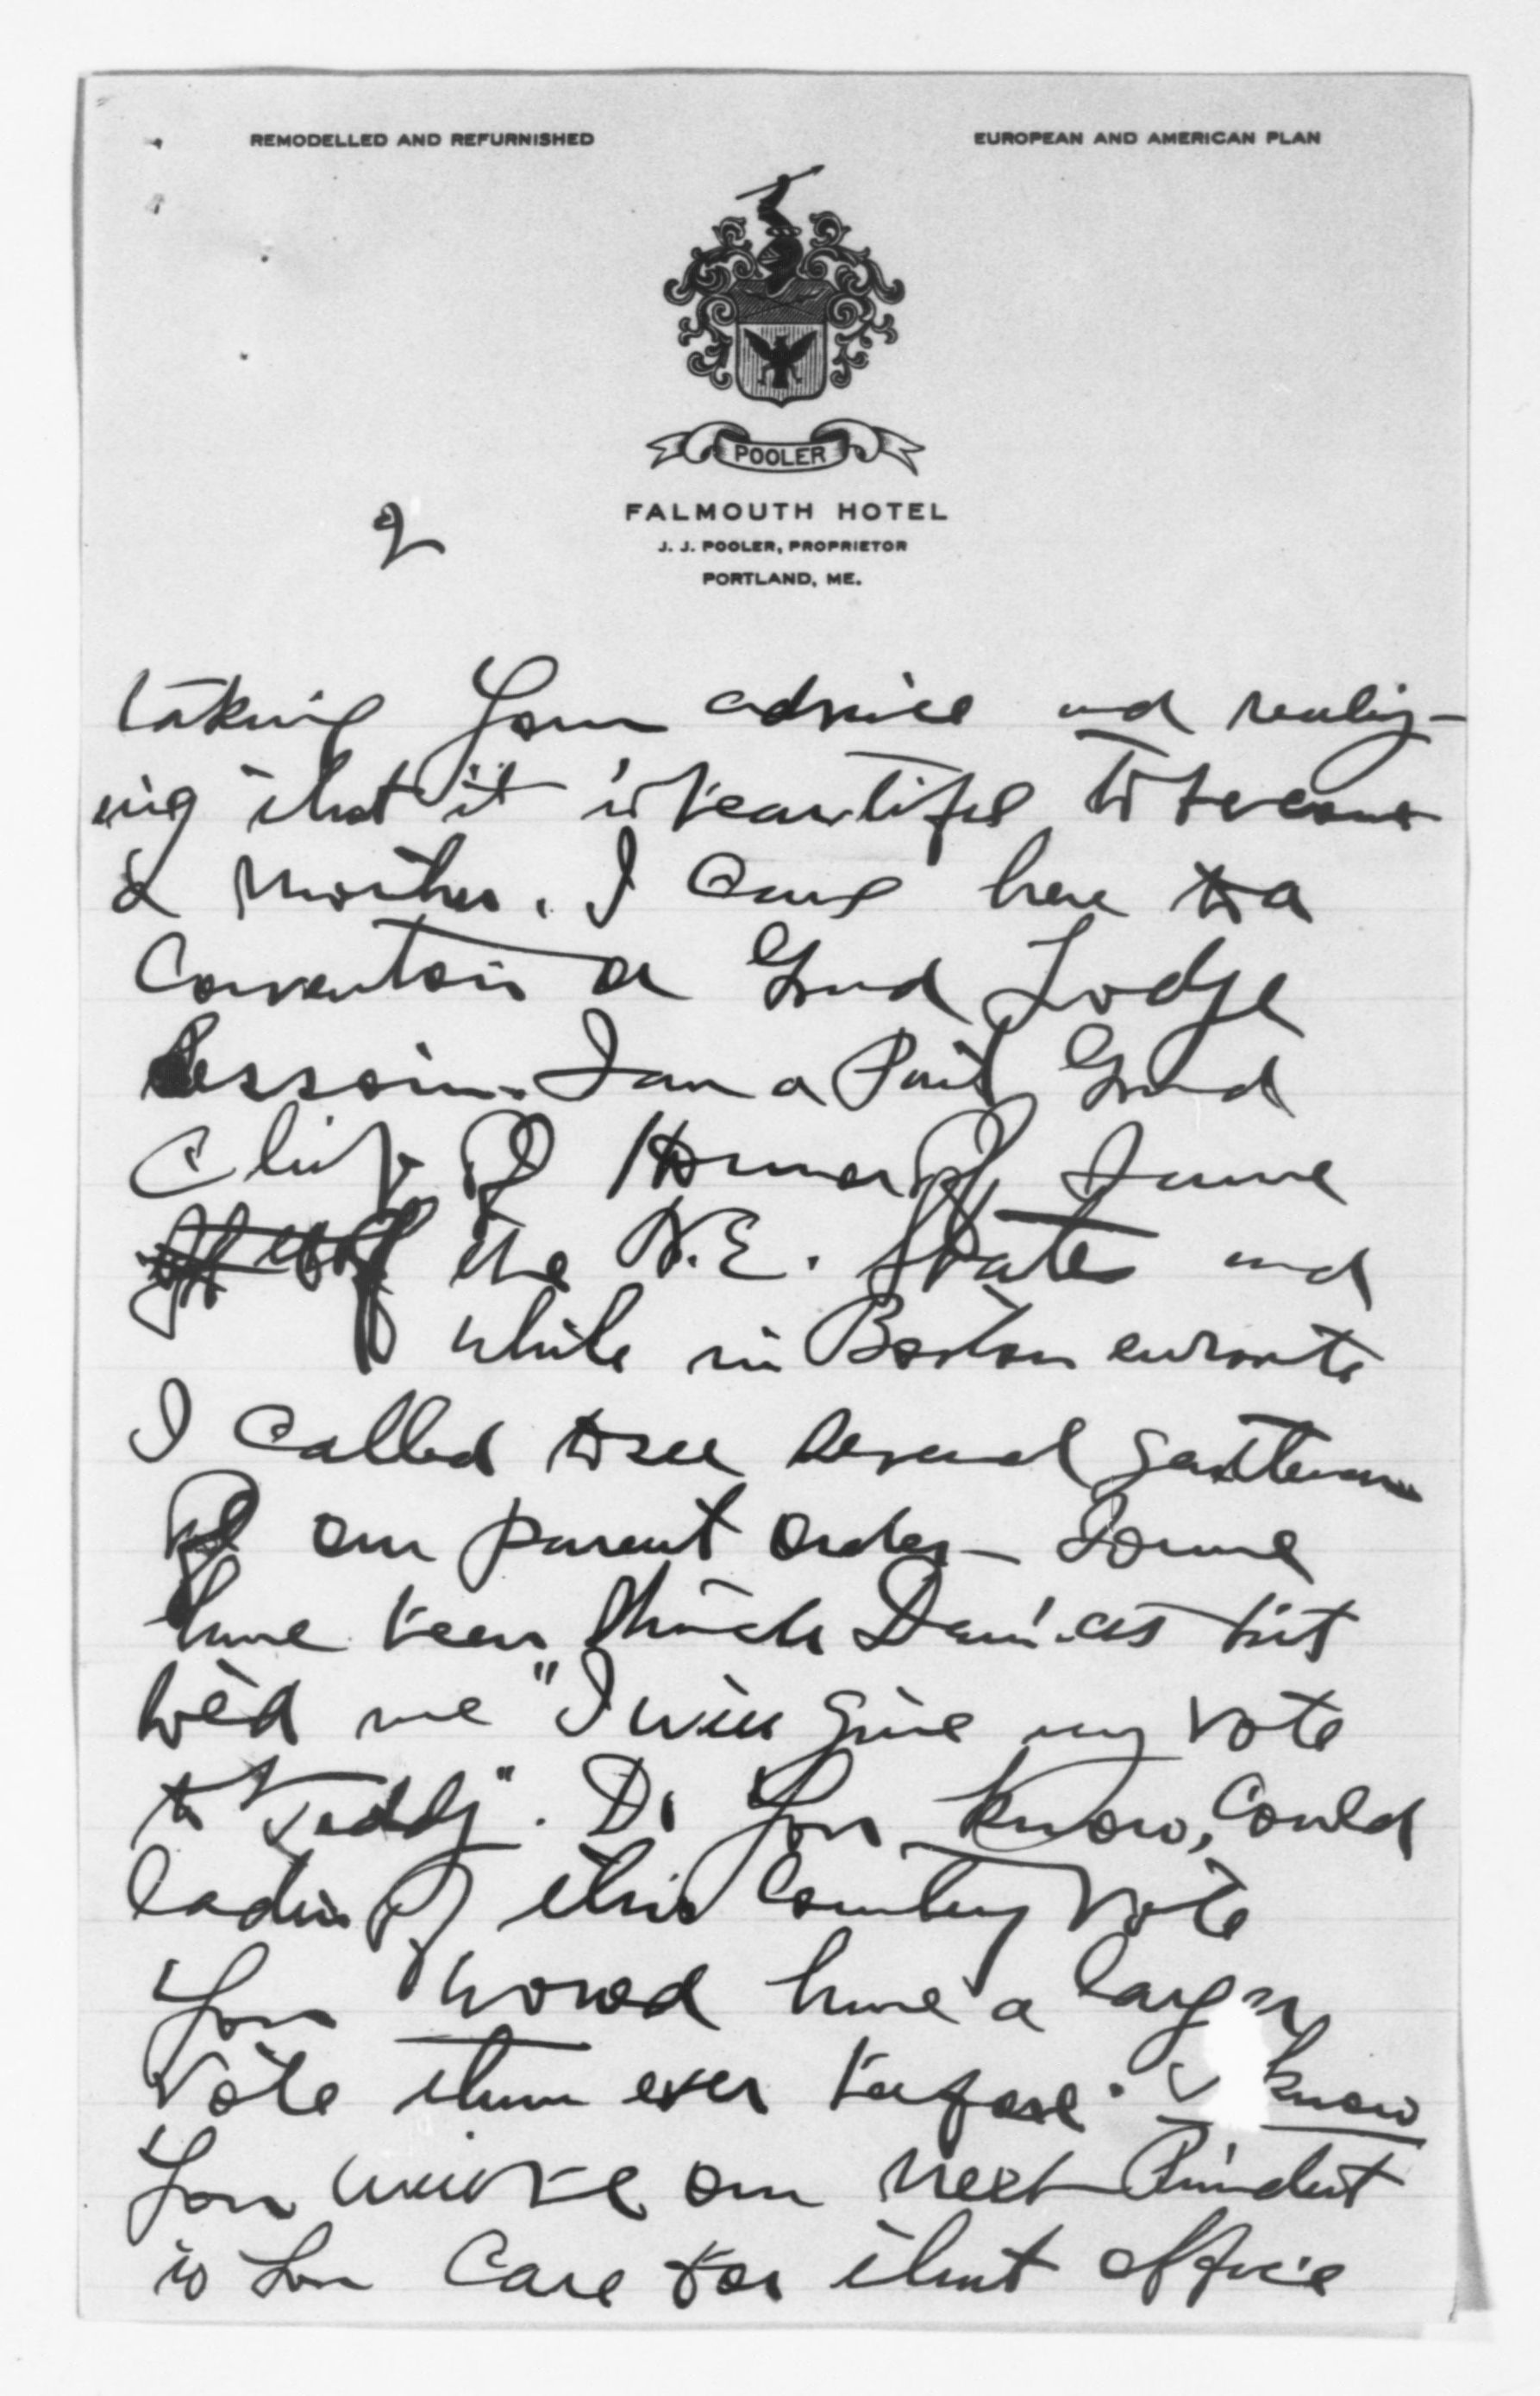 REMODELLED AND REFURNISHED
EUROPEAN AND AMERICAN PLAN
POOLER
FALMOUTH HOTEL
J. J. POOLER, PROPRIETOR
PORTLAND, ME.
2
taking your advice and realiz-
ing that it is beautiful to become
a mother. I came here to a
Convention or Grand Lodge
Session. I am a Past Grand
Chief of Honor of some
of the N.E. States and
while in Boston enroute
I called to see several gentlemen
of our parent order - Some
have been staunch Dem'.cts but
told me "I will give my vote
to Teddy". Do you know, could
ladies of this Country Vote
you would have a larger
Vote than ever before. I know
you will be our next President
if you care for that office